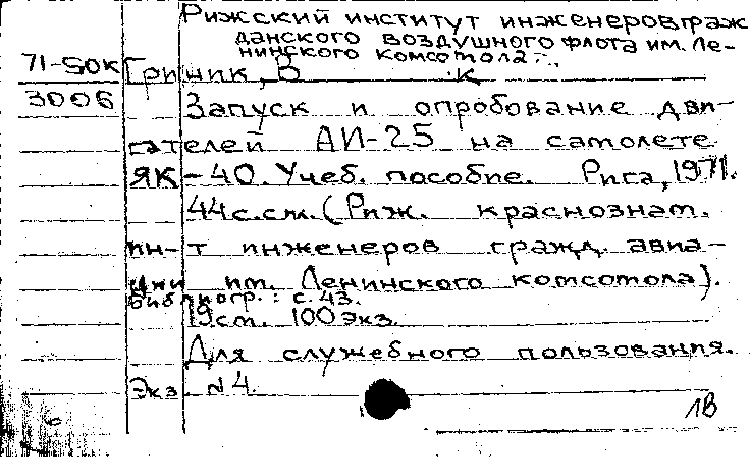 Рижский институт инженеров граж
данского воздушного флота им. Ле-
нинского комсомола.
71-50к Гриник, В к
3006 Запуск и опробование дви-
гателей АИ-25 на самолете
ЯК-40. Учеб. пособие. Рига, 1971.
44 с. сж. (Риж. краснознам.
ин-т инженеров гражд. авиа-
ции им. Ленинского комсомола).
Библиогр.: с. 43.
19 см. 100 экз.
Для служебного пользования.
Экз. N4.
1В
6